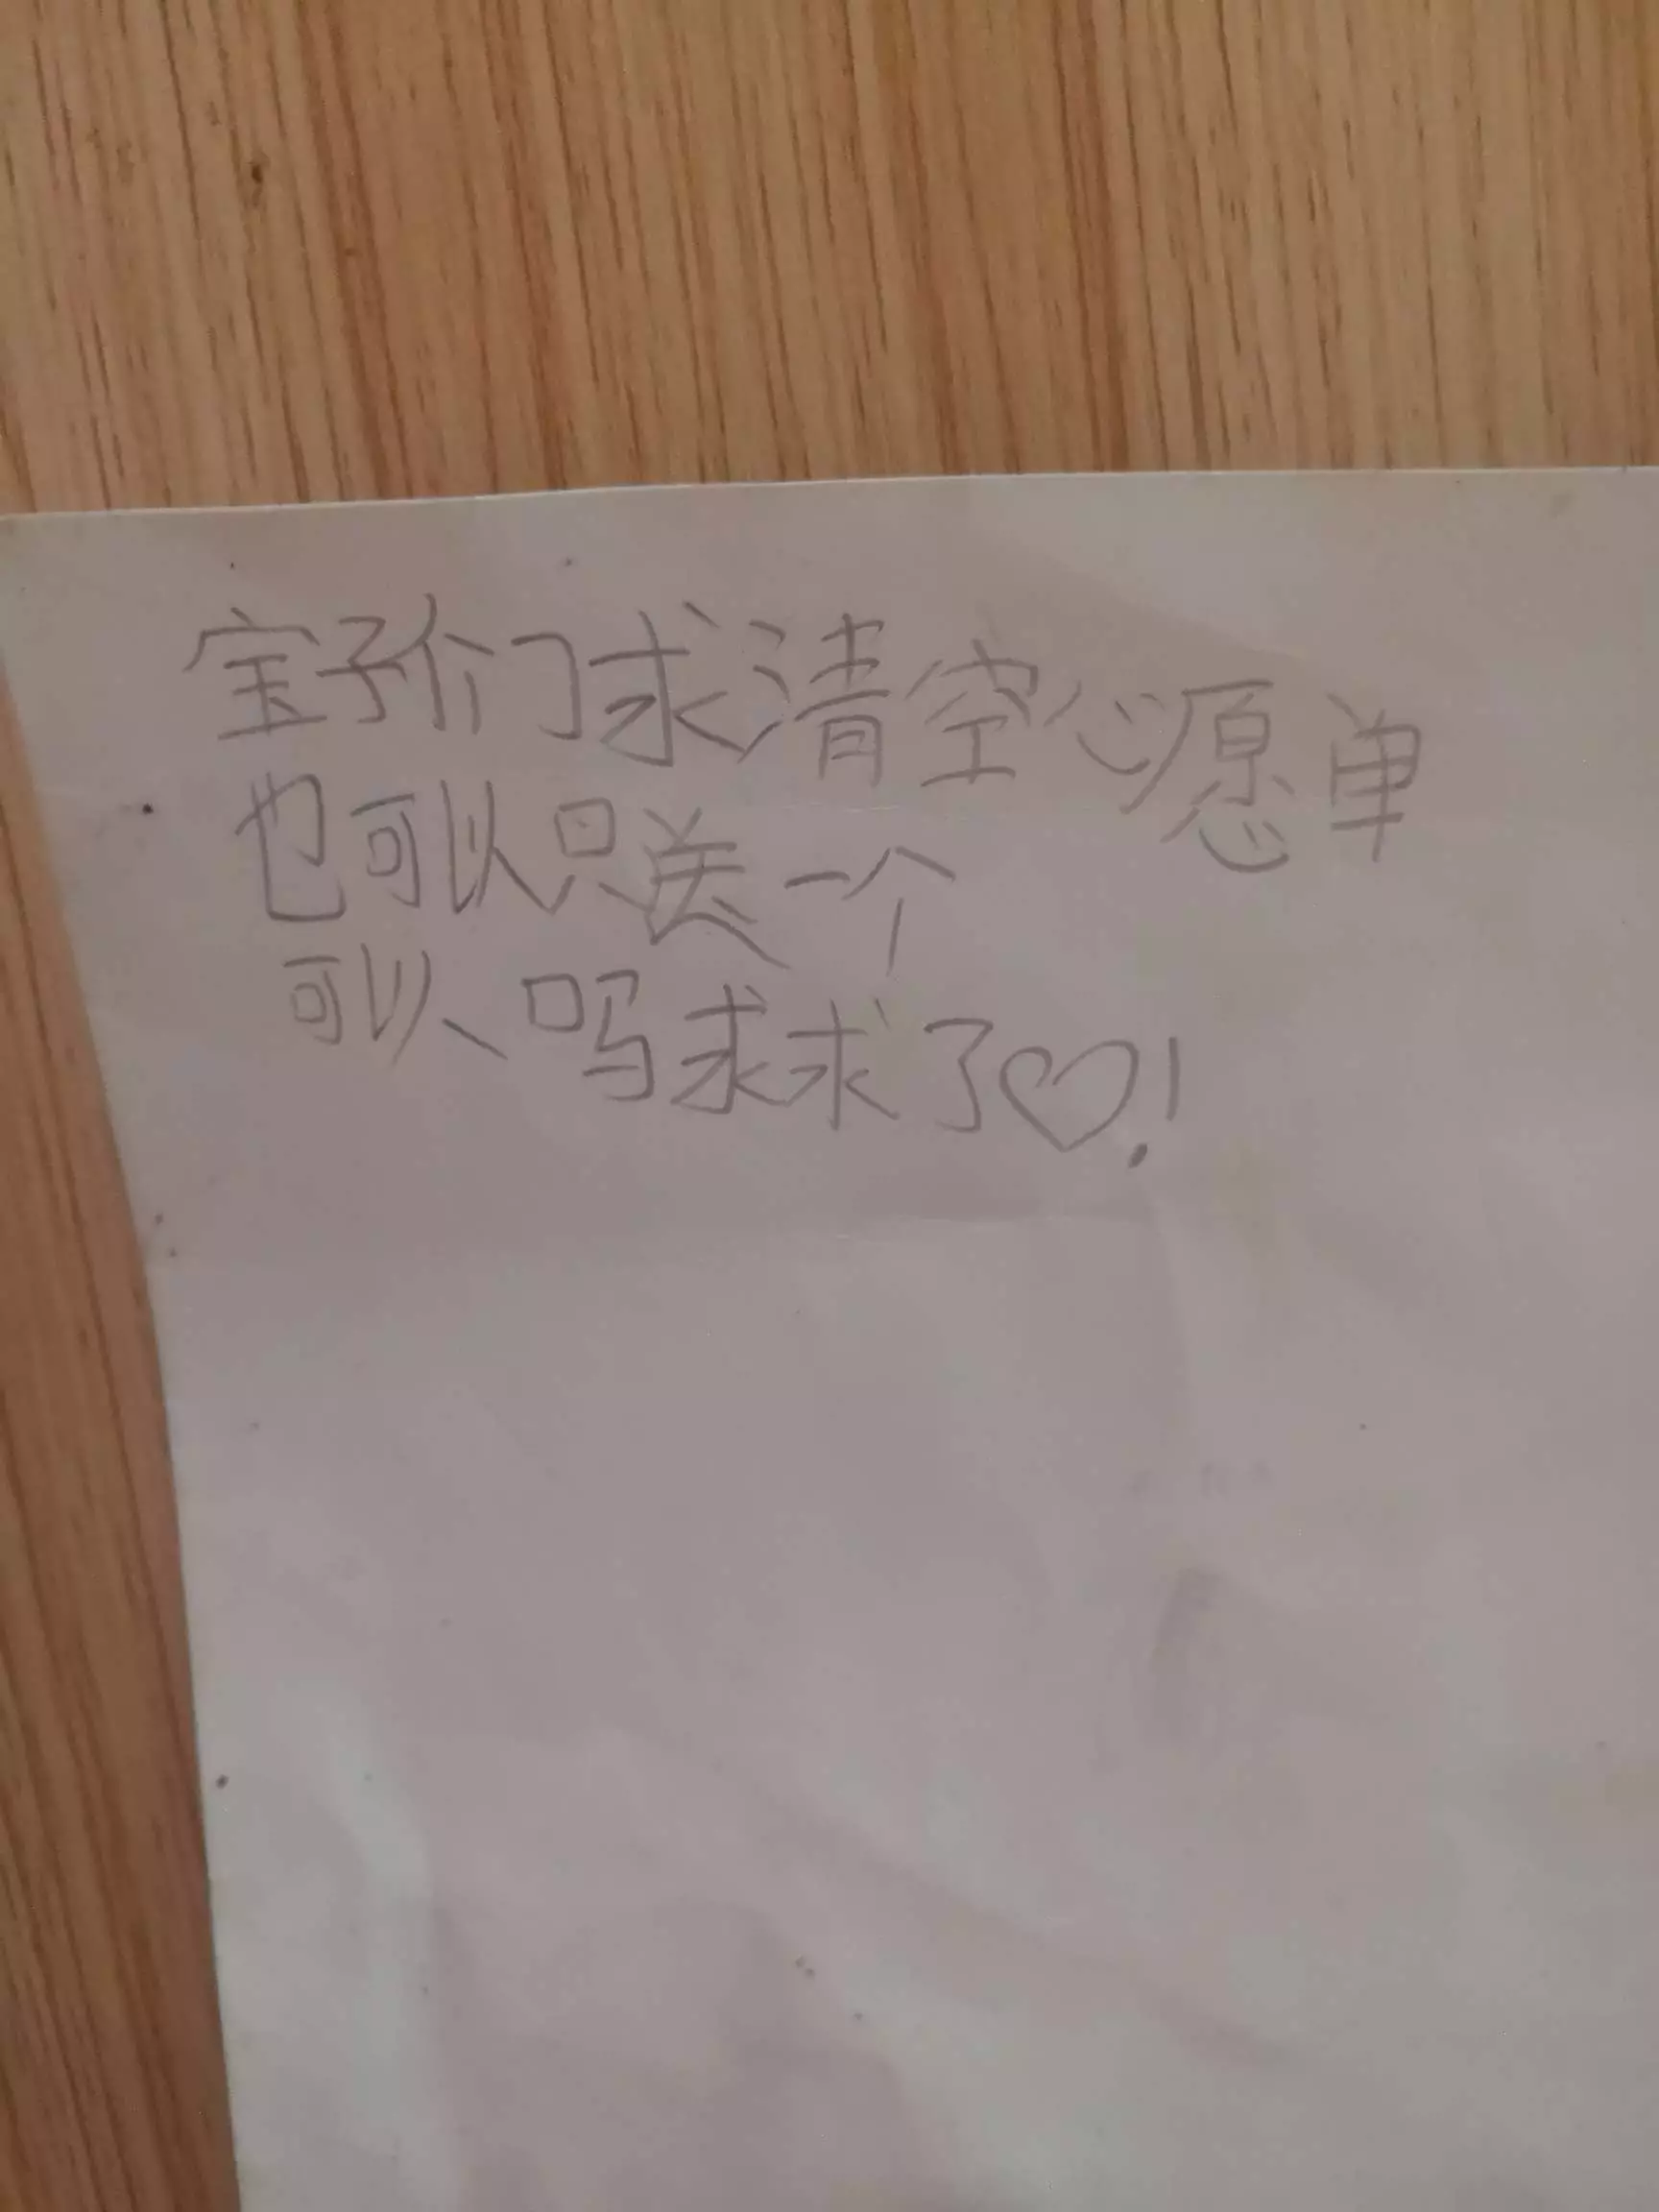 宝子们求清空心愿单
也可以只送一个
可以吗求求了♡!